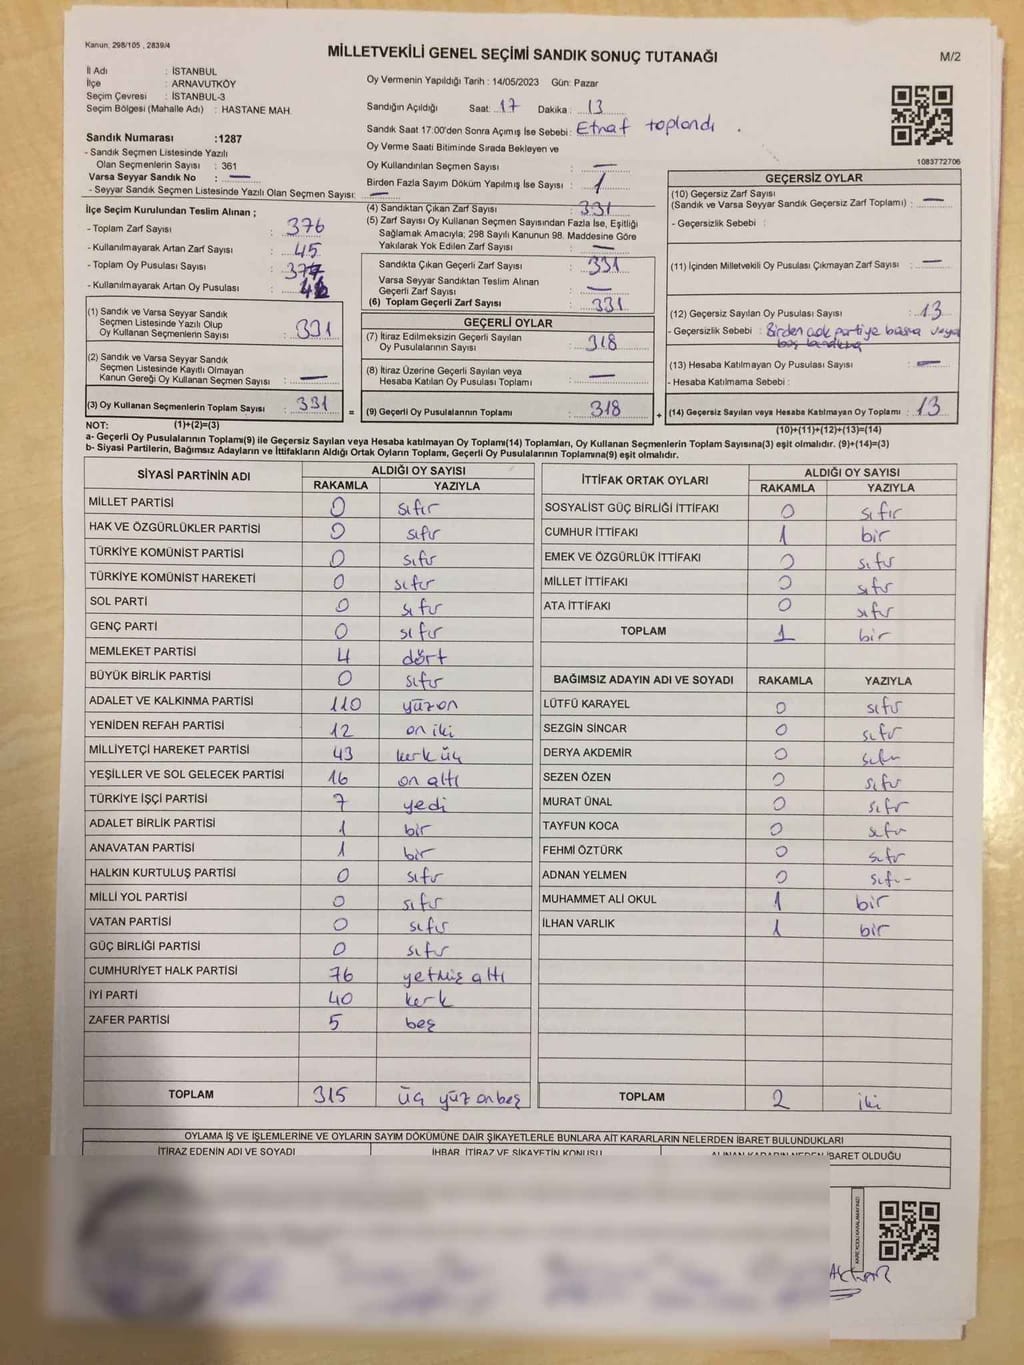 Kanun; 298/105 , 2839/4
MİLLETVEKİLİ GENEL SEÇİMİ SANDIK SONUÇ TUTANAĞI
M/2
İl Adı : İSTANBUL
İlçe : ARNAVUTKÖY
Seçim Çevresi : İSTANBUL-3
Seçim Bölgesi (Mahalle Adı) : HASTANE MAH.
Oy Vermenin Yapıldığı Tarih : 14/05/2023 Gün: Pazar
Sandığın Açıldığı Saat: 17 Dakika : 13
Sandık Saat 17:00'den Sonra Açımış İse Sebebi : Etraf toplandı .
Oy Verme Saati Bitiminde Sırada Bekleyen ve
Oy Kullandırılan Seçmen Sayısı : —
Birden Fazla Sayım Döküm Yapılmış İse Sayısı : 1
1083772706
Sandık Numarası :1287
- Sandık Seçmen Listesinde Yazılı
Olan Seçmenlerin Sayısı : 361
Varsa Seyyar Sandık No : —
- Seyyar Sandık Seçmen Listesinde Yazılı Olan Seçmen Sayısı: —
İlçe Seçim Kurulundan Teslim Alınan ;
- Toplam Zarf Sayısı : 376
- Kullanılmayarak Artan Zarf Sayısı : 45
- Toplam Oy Pusulası Sayısı :
- Kullanılmayarak Artan Oy Pusulası :
(1) Sandık ve Varsa Seyyar Sandık
Seçmen Listesinde Yazılı Olup
Oy Kullanan Seçmenlerin Sayısı : 331
(2) Sandık ve Varsa Seyyar Sandık
Seçmen Listesinde Kayıtlı Olmayan
Kanun Gereği Oy Kullanan Seçmen Sayısı : —
(3) Oy Kullanan Seçmenlerin Toplam Sayısı : 331
(1)+(2)=(3)
(4) Sandıktan Çıkan Zarf Sayısı : 331
(5) Zarf Sayısı Oy Kullanan Seçmen Sayısından Fazla İse, Eşitliği
Sağlamak Amacıyla; 298 Sayılı Kanunun 98. Maddesine Göre
Yakılarak Yok Edilen Zarf Sayısı : —
Sandıkta Çıkan Geçerli Zarf Sayısı : 331
Varsa Seyyar Sandıktan Teslim Alınan
Geçerli Zarf Sayısı : —
(6) Toplam Geçerli Zarf Sayısı : 331
GEÇERLİ OYLAR
(7) İtiraz Edilmeksizin Geçerli Sayılan
Oy Pusulalarının Sayısı : 318
(8) İtiraz Üzerine Geçerli Sayılan veya
Hesaba Katılan Oy Pusulası Toplamı : —
= (9) Geçerli Oy Pusulalarının Toplamı : 318
GEÇERSİZ OYLAR
(10) Geçersiz Zarf Sayısı
(Sandık ve Varsa Seyyar Sandık Geçersiz Zarf Toplamı) : —
- Geçersizlik Sebebi :
(11) İçinden Milletvekili Oy Pusulası Çıkmayan Zarf Sayısı : —
(12) Geçersiz Sayılan Oy Pusulası Sayısı : 13
- Geçersizlik Sebebi : Birden çok partiye basma veya
(13) Hesaba Katılmayan Oy Pusulası Sayısı : —
- Hesaba Katılmama Sebebi :
+ (14) Geçersiz Sayılan veya Hesaba Katılmayan Oy Toplamı : 13
(10)+(11)+(12)+(13)=(14)
NOT:
a- Geçerli Oy Pusulalarının Toplamı(9) ile Geçersiz Sayılan veya Hesaba katılmayan Oy Toplamı(14) Toplamları, Oy Kullanan Seçmenlerin Toplam Sayısına(3) eşit olmalıdır. (9)+(14)=(3)
b- Siyasi Partilerin, Bağımsız Adayların ve İttifakların Aldığı Ortak Oyların Toplamı, Geçerli Oy Pusulalarının Toplamına(9) eşit olmalıdır.
SİYASİ PARTİNİN ADI ALDIĞI OY SAYISI
RAKAMLA YAZIYLA
MİLLET PARTİSİ 0 sıfır
HAK VE ÖZGÜRLÜKLER PARTİSİ 0 sıfır
TÜRKİYE KOMÜNİST PARTİSİ 0 sıfır
TÜRKİYE KOMÜNİST HAREKETİ 0 sıfır
SOL PARTİ 0 sıfır
GENÇ PARTİ 0 sıfır
MEMLEKET PARTİSİ 4 dört
BÜYÜK BİRLİK PARTİSİ 0 sıfır
ADALET VE KALKINMA PARTİSİ 110 yüzon
YENİDEN REFAH PARTİSİ 12 on iki
MİLLİYETÇİ HAREKET PARTİSİ 43 kerk üç
YEŞİLLER VE SOL GELECEK PARTİSİ 16 on altı
TÜRKİYE İŞÇİ PARTİSİ 7 yedi
ADALET BİRLİK PARTİSİ 1 bir
ANAVATAN PARTİSİ 1 bir
HALKIN KURTULUŞ PARTİSİ 0 sıfır
MİLLİ YOL PARTİSİ 0 sıfır
VATAN PARTİSİ 0 sıfır
GÜÇ BİRLİĞİ PARTİSİ 0 sıfır
CUMHURİYET HALK PARTİSİ 76 yetmiş altı
İYİ PARTİ 40 kerk
ZAFER PARTİSİ 5 beş
TOPLAM 315 üç yüz onbeş
İTTİFAK ORTAK OYLARI ALDIĞI OY SAYISI
RAKAMLA YAZIYLA
SOSYALİST GÜÇ BİRLİĞİ İTTİFAKI 0 sıfır
CUMHUR İTTİFAKI 1 bir
EMEK VE ÖZGÜRLÜK İTTİFAKI 0 sıfır
MİLLET İTTİFAKI 0 sıfır
ATA İTTİFAKI 0 sıfır
TOPLAM 1 bir
BAĞIMSIZ ADAYIN ADI VE SOYADI RAKAMLA YAZIYLA
LÜTFÜ KARAYEL 0 sıfır
SEZGİN SİNCAR 0 sıfır
DERYA AKDEMİR 0 sıfır
SEZEN ÖZEN 0 sıfır
MURAT ÜNAL 0 sıfır
TAYFUN KOCA 0 sıfır
FEHMİ ÖZTÜRK 0 sıfır
ADNAN YELMEN 0 sıfır
MUHAMMET ALİ OKUL 1 bir
İLHAN VARLIK 1 bir
TOPLAM 2 iki
OYLAMA İŞ VE İŞLEMLERİNE VE OYLARIN SAYIM DÖKÜMÜNE DAİR ŞİKAYETLERLE BUNLARA AİT KARARLARIN NELERDEN İBARET BULUNDUKLARI
İTİRAZ EDENİN ADI VE SOYADI İHBAR, İTİRAZ VE ŞİKAYETİN KONUSU ALINAN KARARIN NEDEN İBARET OLDUĞU
KARE KODU KARALAMAYINIZ!